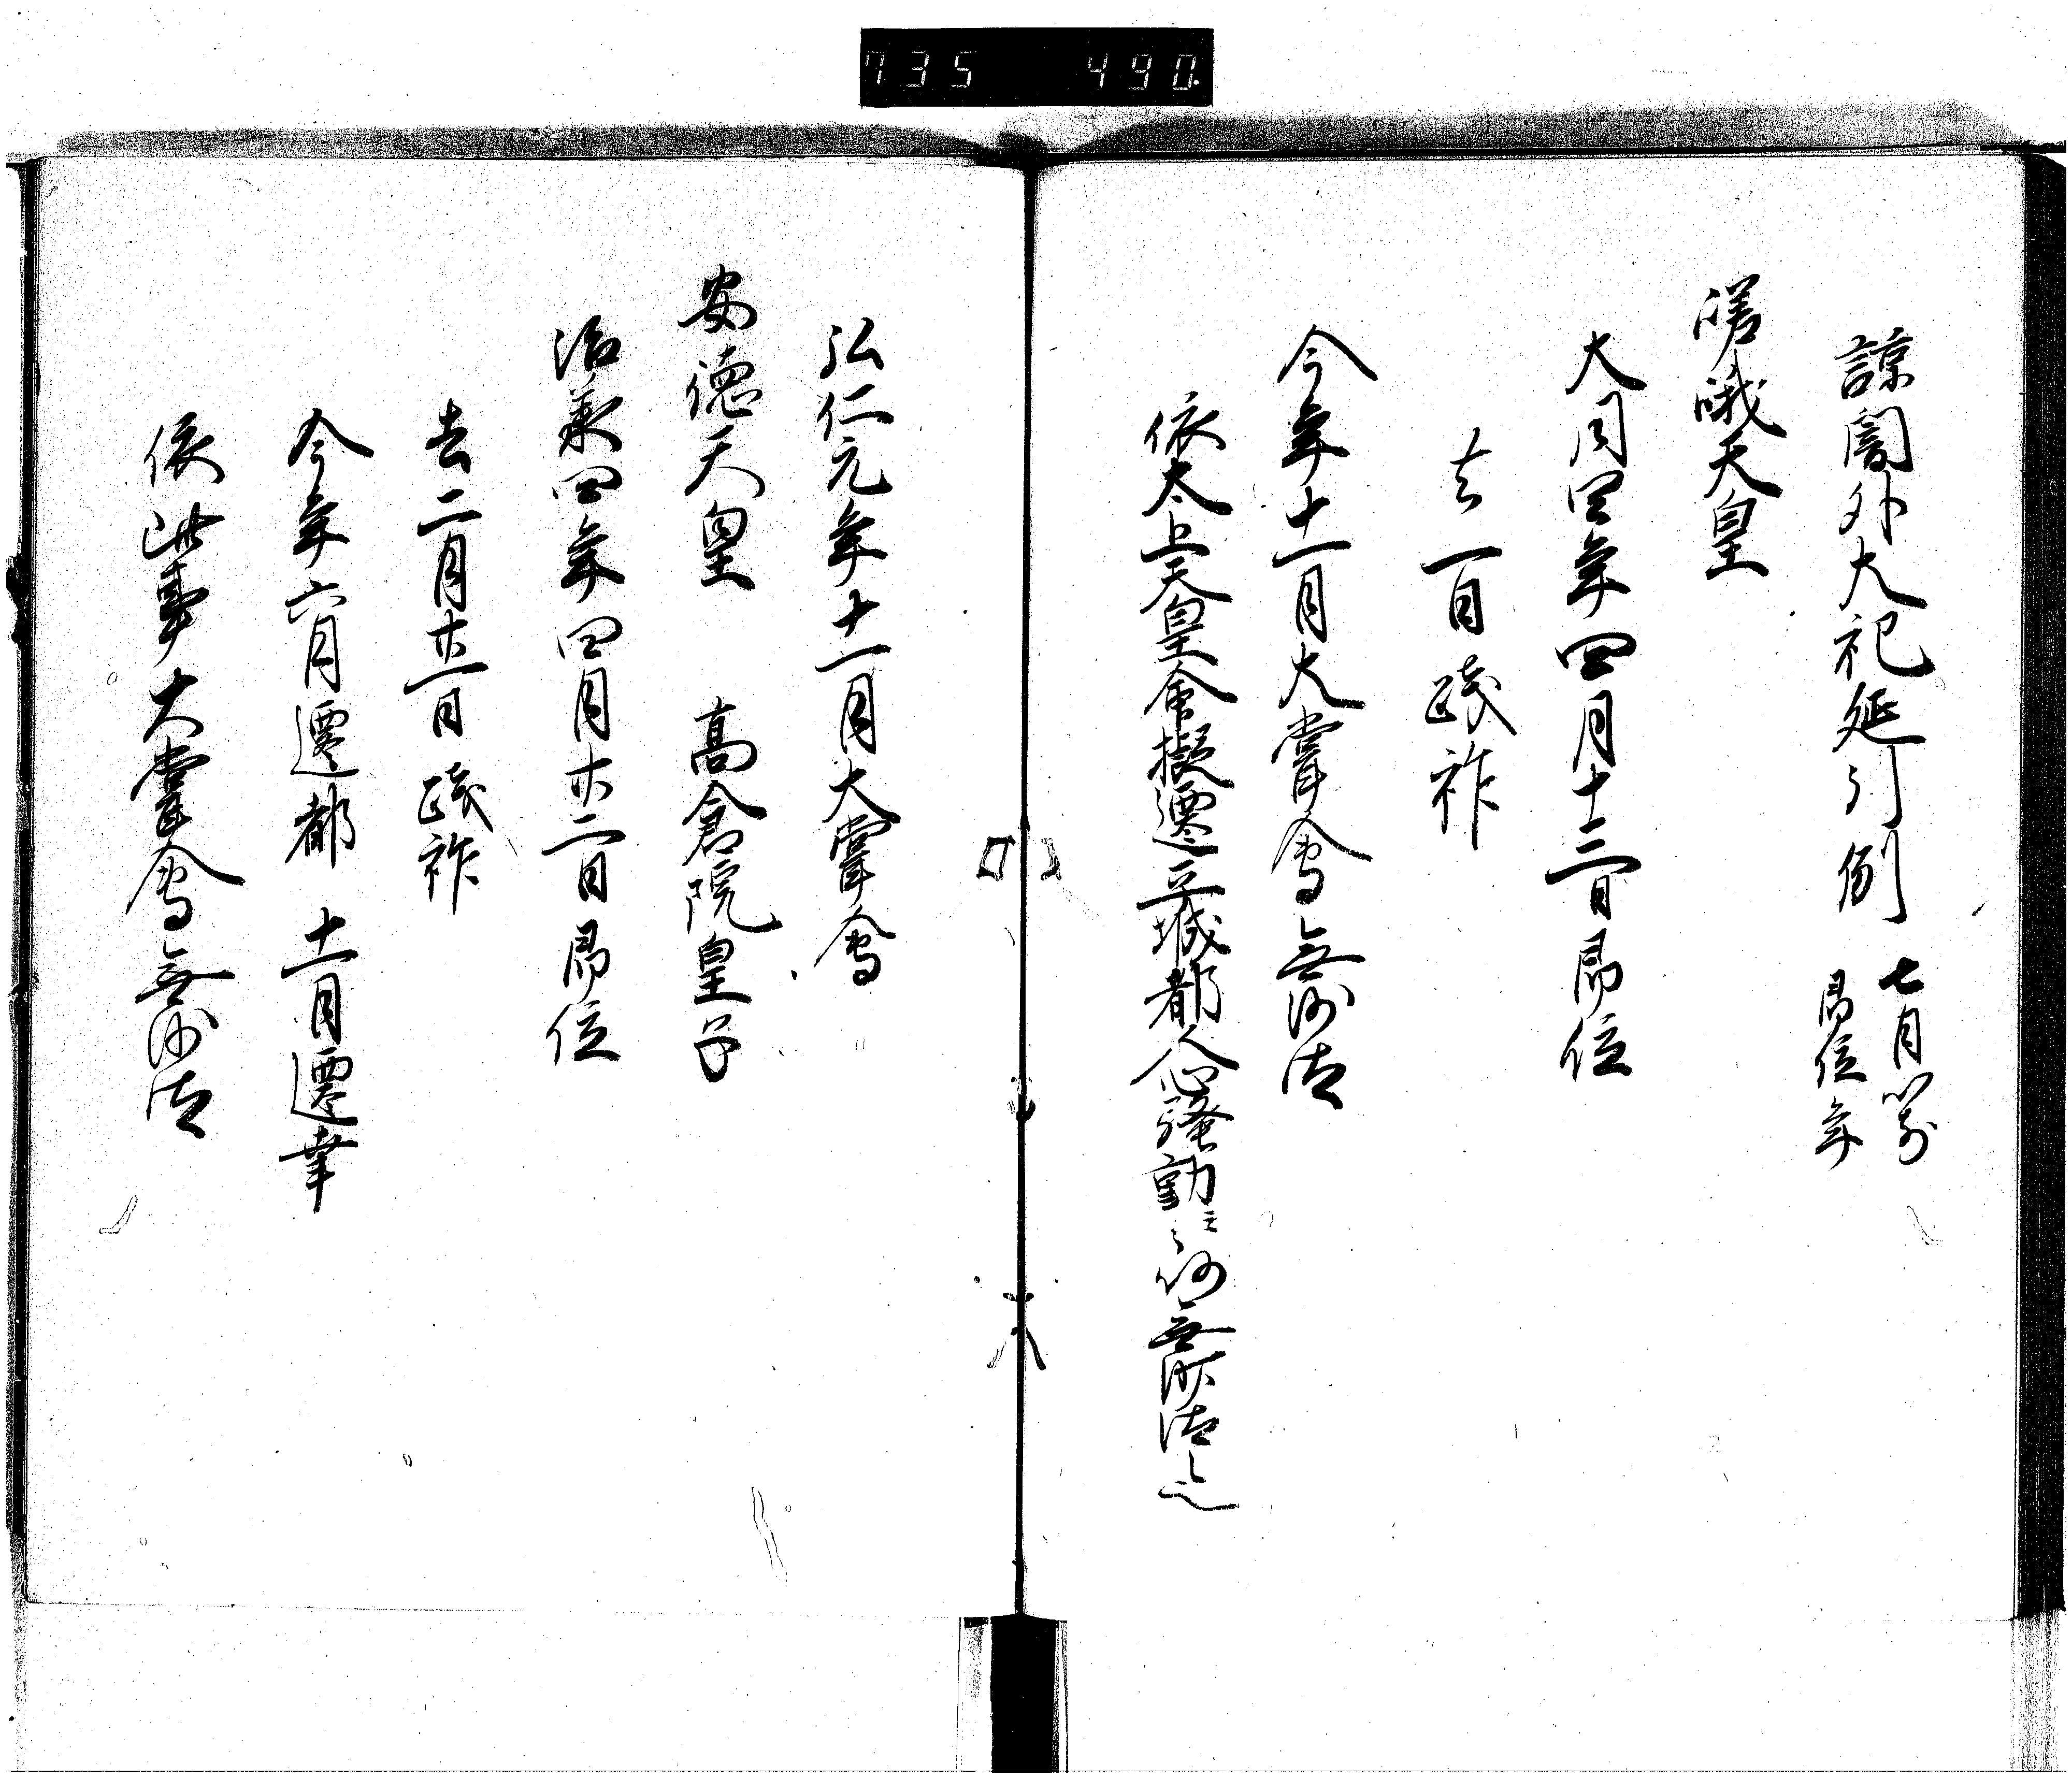 735 490
諒闇外大祀延引例 七月以前
即位年
嵯峨天皇
大同四年四月十三日即位
去一日践祚
今年十一月大嘗会無沙汰
依太上天皇命擬遷平城都人心騒動云々仍無沙汰之
弘仁元年十一月大嘗会
安徳天皇 高倉院皇子
治承四年四月廿二日即位
去二月廿一日践祚
今年六月遷都 十一月還幸
依此事大嘗会無沙汰